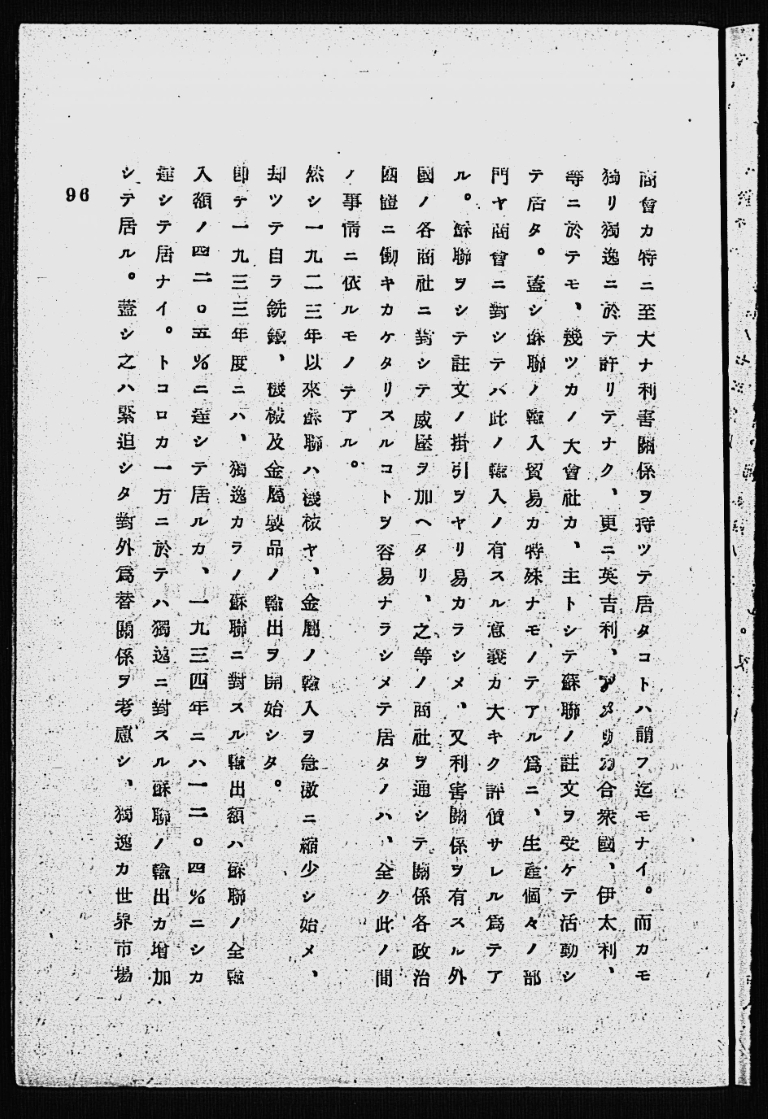 商會カ特ニ至大ナ利害關係ヲ持ツテ居タコトハ謂フ迄モナイ。而カモ
獨リ獨逸ニ於テ許リテナク、更ニ英吉利、アメリカ合衆國、伊太利、
等ニ於テモ、幾ツカノ大會社カ、主トシテ蘇聯ノ註文ヲ受ケテ活動シ
テ居タ。蓋シ蘇聯ノ輸入貿易カ特殊ナモノテアル爲ニ、生産個々ノ部
門ヤ商會ニ對シテハ此ノ輸入ノ有スル意義カ大キク評價サレル爲テア
ル。蘇聯ヲシテ註文ノ掛引ヲヤリ易カラシメ、又利害關係ヲ有スル外
國ノ各商社ニ對シテ威壓ヲ加ヘタリ、之等ノ商社ヲ通シテ關係各政治
團體ニ働キカケタリスルコトヲ容易ナラシメテ居タノハ、全ク此ノ間
ノ事情ニ依ルモノテアル。
然シ一九二三年以來蘇聯ハ機械ヤ、金屬ノ輸入ヲ急激ニ縮少シ始メ、
却ツテ自ラ銑鐵、機械及金屬製品ノ輸出ヲ開始シタ。
卽チ一九三三年度ニハ、獨逸カラノ蘇聯ニ對スル輸出額ハ蘇聯ノ全輸
入額ノ四二。五%ニ達シテ居ルカ、一九三四年ニハ一二。四%ニシカ
達シテ居ナイ。トコロカ一方ニ於テハ獨逸ニ對スル蘇聯ノ輸出カ增加
シテ居ル。蓋シ之ハ緊迫シタ對外爲替關係ヲ考慮シ、獨逸カ世界市場
96